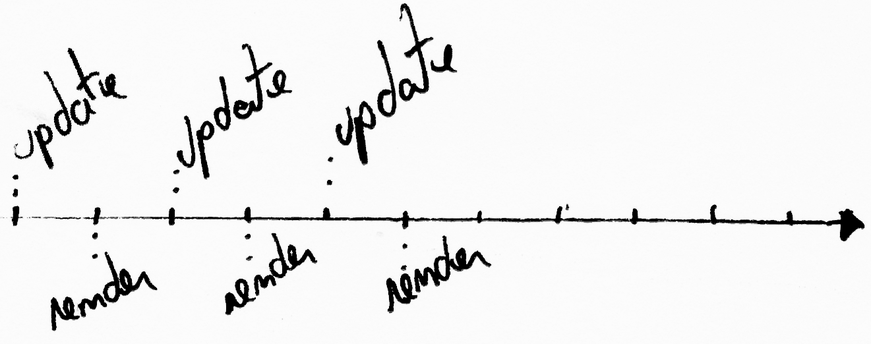 update
update
update
render
render
render